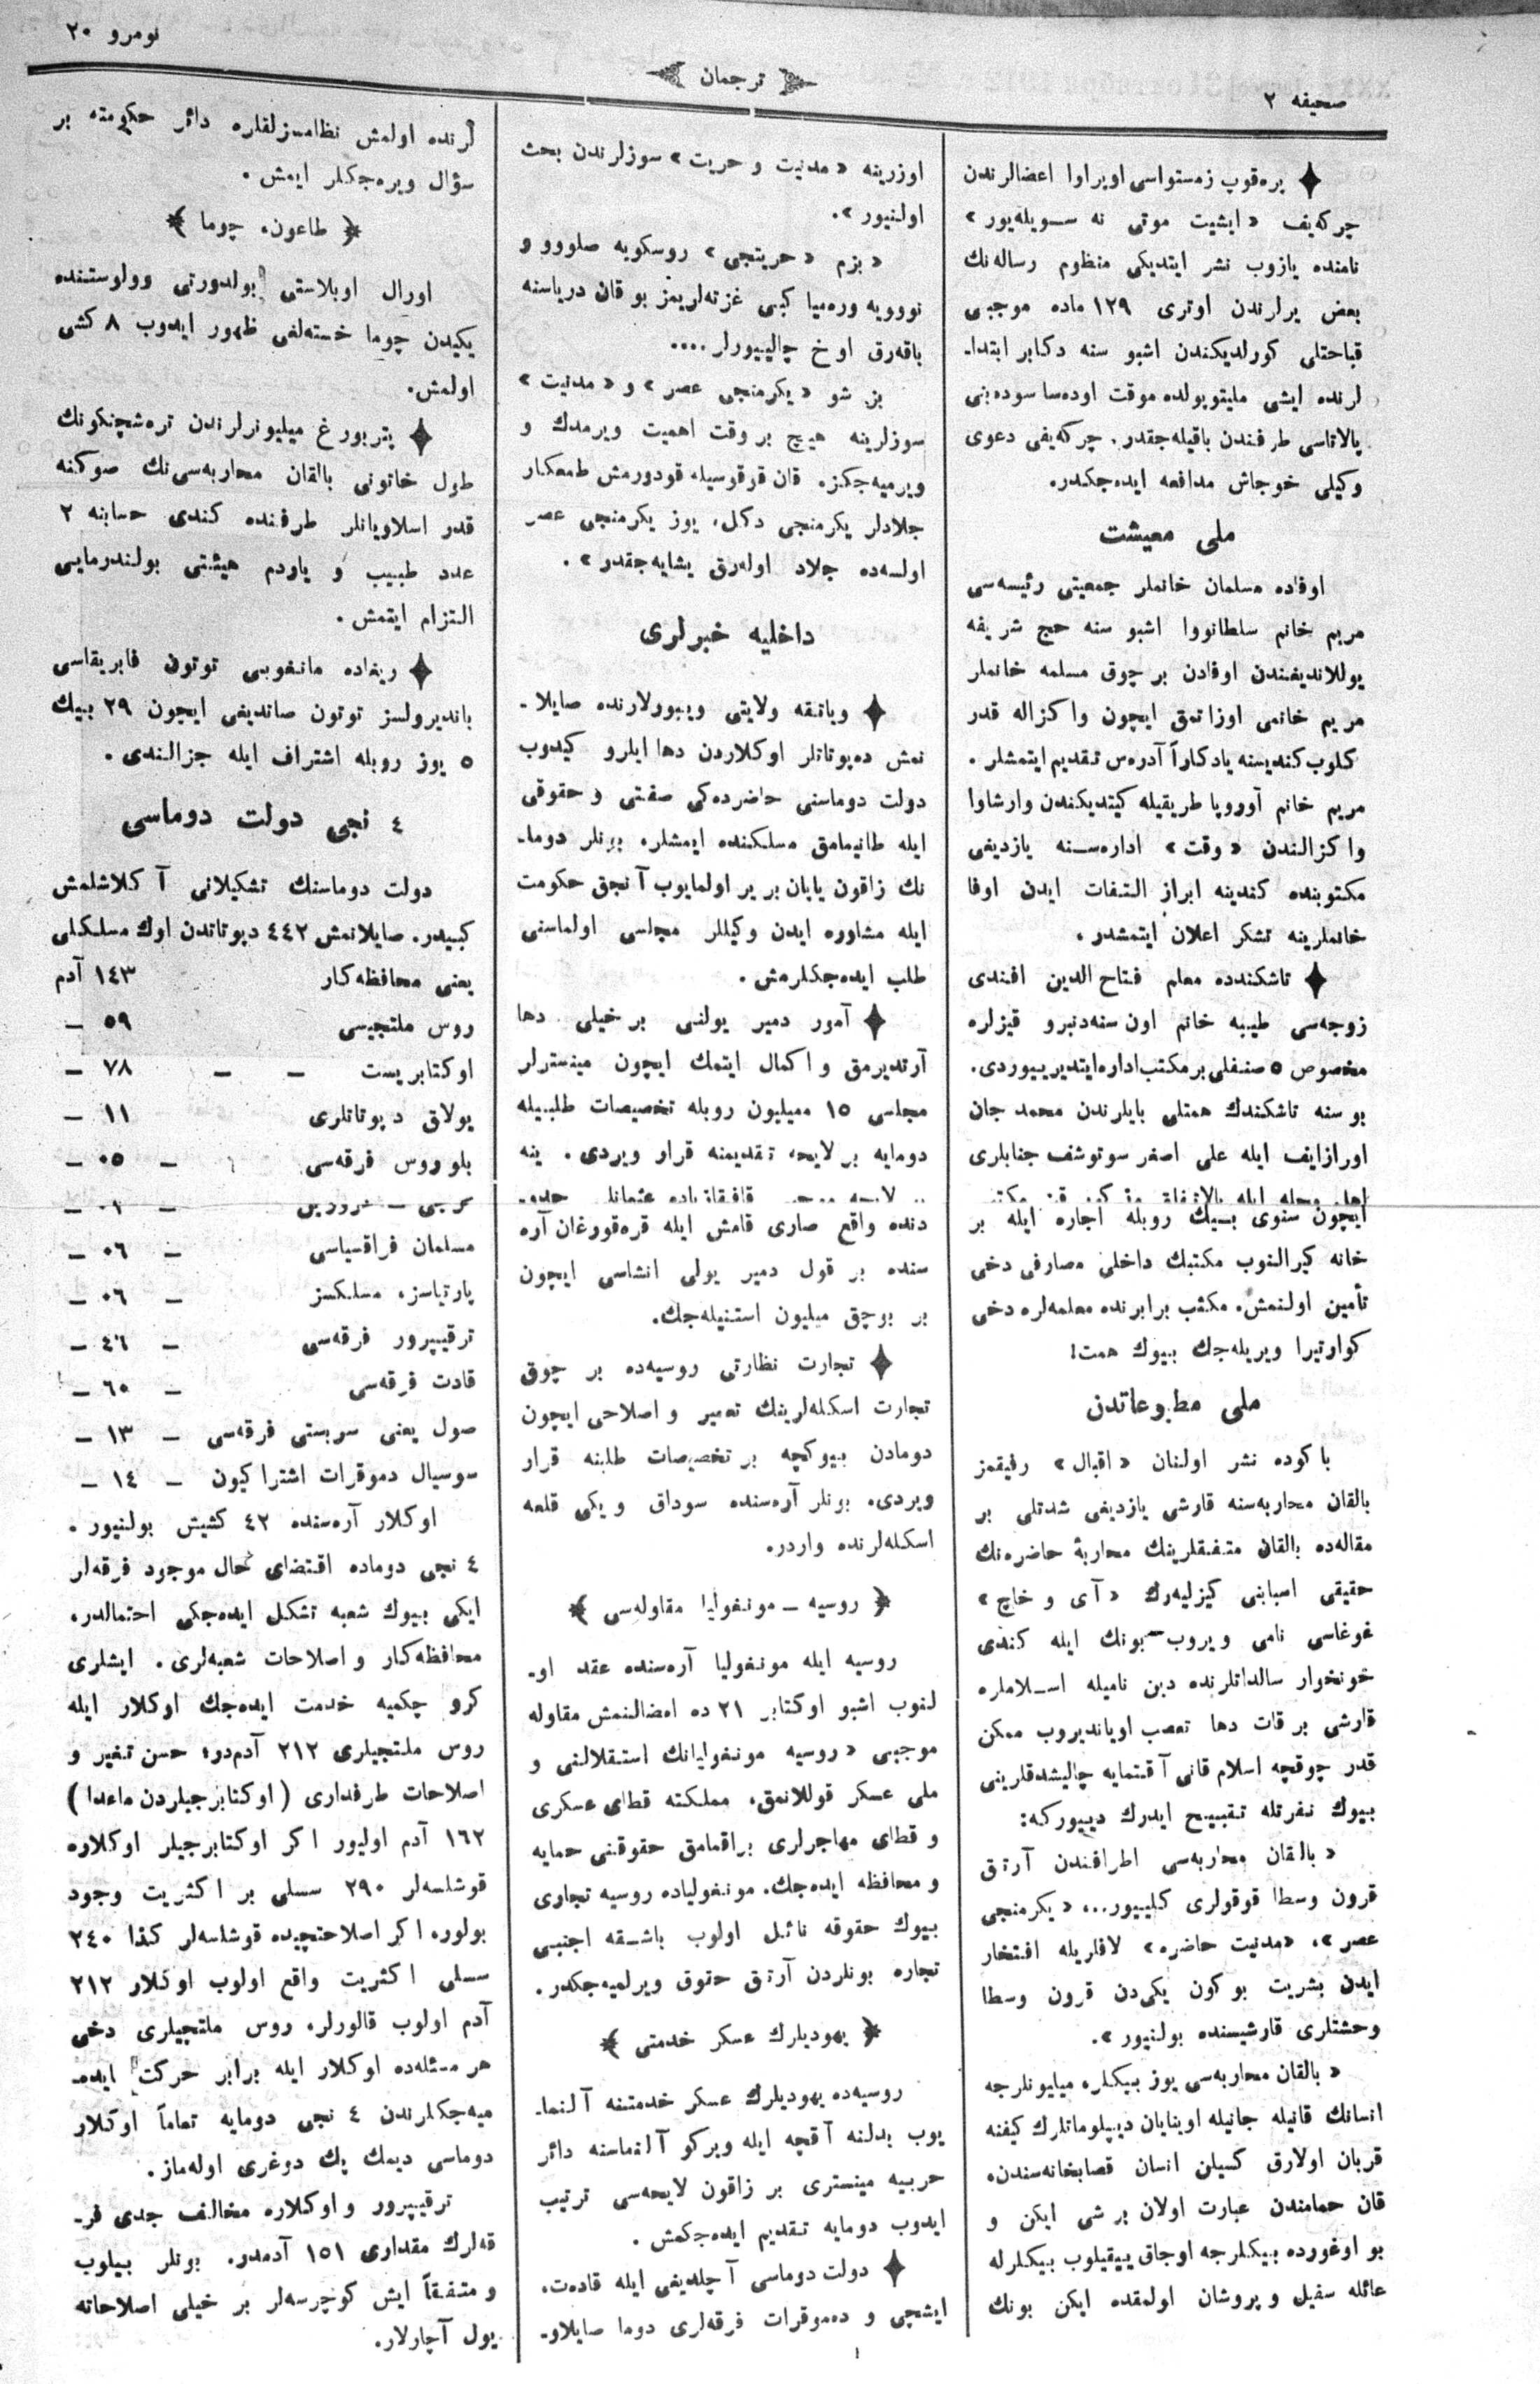 نومرو ٢٠
ترجمان
صحيفه ٢
يره‌قوپ زمستواسى اوپراوا اعضالرندن
چركه‌يف « ايشيت موتى نه سـويله‌يور »
نامنده يازوب نشر ايتديكى منظوم رساله‌نك
بعض يرلرندن اوترى ١٢٩ ماده موجبى
قباحتلى كورلديكندن اشبو سنه دكابر ابتدا-
لرنده ايشى مليتوپولده موقت اوده‌سا سوده‌بنى
پالاتاسى طرفندن باقيله‌جقدر. چركه‌يفى دعوى
وكيلى خوجاش مدافعه ايده‌جكدر.
ملى معيشت
اوفاده مسلمان خانملر جمعيتى رئيسه‌سى
مريم خانم سلطانووا اشبو سنه حج شريفه
يوللانديغندن اوفادن بر چوق مسلمه خانملر
مريم خانمى اوزاتمق ايچون واكزاله قدر
كلوب كنديسنه يادكاراً آدره‌س تقديم ايتمشلر.
مريم خانم آوروپا طريقيله كيتديكندن وارشاوا
واكزالندن « وقت » اداره‌سـنه يازديغى
مكتوبنده كندينه ابراز التفات ايدن اوفا
خانملرينه تشكر اعلان ايتمشدر.
تاشكندده معلم فتاح الدين افندى
زوجه‌سى طيبه خانم اون سنه‌دنبرو قيزلره
مخصوص ٥ صنفلى بر مكتب اداره ايتديرييوردى.
بو سنه تاشكندك همتلى بايلرندن محمد جان
اورازايف ايله على اصغر سوتوشف جنابلرى
ايچون سنوى بـيك روبله اجاره ايله بر
خانه كيرالنوب مكتبك داخلى مصارفى دخى
تأمين اولنمش. مكتب برابرنده معلمه‌لره دخى
كوارتيرا ويريله‌جك بيوك همت!
ملى مطبوعاتدن
باكوده نشر اولنان « اقبال » رفيقمز
بالقان محاربه‌سنه قارشى يازديغى شدتلى بر
مقاله‌ده بالقان متفقلرينك محاربۀ حاضره‌نك
حقيقى اسبابنى كيزليه‌رك « آى و خاچ »
غوغاسى نامى ويروب بونك ايله كندى
خونخوار سالداتلرنده دين ناميله اسـلاملره
قارشى بر قات دها تعصب اويانديروب ممكن
قدر چوقچه اسلام قانى آقتمايه چاليشدقلرينى
بيوك نفرتله تقبيح ايدرك دييوركه:
« بالقان محاربه‌سى اطرافندن آرتق
قرون وسطا قوقولرى كلييور...، « يكرمنجى
عصر »، « مدنيت حاضره » لافلريله افتخار
ايدن بشريت بوكون يكى‌دن قرون وسطا
وحشتلرى قارشيسنده بولنيور ».
« بالقان محاربه‌سى يوز بيكلر، ميليونلرجه
انسانك قانيله جانيله اوينايان ديپلوماتلرك كيفنه
قربان اولارق كسيلن انسان قصابخانه‌سندن،
قان حمامندن عبارت اولان بر شى ايكن و
بو اوغورده بيكلرجه اوجاق ييقيلوب بيكلرله
عائله سفيل و پروشان اولمقده ايكن بونك
اوزرينه « مدنيت و حريت » سوزلرندن بحث
اولنيور ».
« بزم « حريتجى » روسكويه صلووو و
نوووِيه وره‌ميا كبى غزته‌لريمز بو قان درياسنه
باقه‌رق اوخ چالييورلر....
بز شو « يكرمنجى عصر » و « مدنيت »
سوزلرينه هيچ بر وقت اهميت ويرمدك و
ويرميه‌جكز. قان قوقوسيله قودورمش طمعكار
جلادلر يكرمنجى دكل، يوز يكرمنجى عصر
اولسه‌ده جلاد اوله‌رق يشايه‌جقدر ».
داخليه خبرلرى
وياتقه ولايتى ويبورلارنده صايلا-
نمش ده‌پوتاتلر اوكلاردن دها ايلرو كيدوب
دولت دوماسنى حاضرده‌كى صفتى و حقوقى
ايله طانيمامق مسلكنده ايمشلر. بونلر دوما-
نك زاقون ياپان بر ير اولمايوب آنجق حكومت
ايله مشاوره ايدن وكيللر مجلسى اولماسنى
طلب ايده‌جكلرمش.
آمور دمير يولنى بر خيلى دها
آرتديرمق و اكمال ايتمك ايچون مينسترلر
مجلسى ١٥ مميليون روبله تخصيصات طلبيله
دومايه بر لايحه تقديمنه قرار ويردى. ينه
دنده واقع صارى قامش ايله قره‌قورغان آره
سنده بر قول دمير يولى انشاسى ايچون
بر بوچق ميليون استنيله‌جك.
تجارت نظارتى روسيه‌ده بر چوق
تجارت اسكله‌لرينك تعمير و اصلاحى ايچون
دومادن بيوكچه بر تخصيصات طلبنه قرار
ويردى. بونلر آره‌سنده سوداق و يكى قلعه
اسكله‌لرنده واردر.
روسيه ــ مونغوليا مقاوله‌سى
روسيه ايله مونغوليا آره‌سنده عقد او-
لنوب اشبو اوكتابر ٢١ ده امضالنمش مقاوله
موجبى « روسيه مونغوليانك استقلالنى و
ملى عسكر قوللانمق، مملكته قطاى عسكرى
و قطاى مهاجرلرى براقمامق حقوقنى حمايه
و محافظه ايده‌جك. مونغولياده روسيه تجارى
بيوك حقوقه نائل اولوب باشـقه اجنبى
تجاره بونلردن آرتق حقوق ويرلميه‌جكدر.
يهوديلرك عسكر خدمتى
روسيه‌ده يهوديلرك عسكر خدمتنه آلنما-
يوب بدلنه آقچه ايله ويركو آلنماسنه دائر
حربيه مينسترى بر زاقون لايحه‌سى ترتيب
ايدوب دومايه تقديم ايده‌جكمش.
دولت دوماسى آچلديغى ايله قاده‌ت،
ايشچى و ده‌موقرات فرقه‌لرى دوما صايلاو-
لرنده اولمش نظامسزلقلره دائر حكومته بر
سؤال ويره‌جكلر ايمش.
طاعون، چوما
اورال اوبلاستى بولدورتى وولوستنده
يكيدن چوما خسته‌لغى ظهور ايدوب ٨ كشى
اولمش.
پتربورغ ميليونرلرندن تره‌شچنكونك
طول خاتونى بالقان محاربه‌سى‌نك صوكنه
قدر اسلاويانلر طرفنده كندى حسابنه ٢
عدد طبيب و ياردم هيئتى بولندرمايى
التزام ايتمش.
ريغاده مانغوبى توتون فابريقاسى
بانديرولسز توتون صاتديغى ايچون ٢٩ بيك
٥ يوز روبله اشتراف ايله جزالندى.
٤ نجى دولت دوماسى
دولت دوماسنك تشكيلاتى آكلاشلمش
كبيدر. صايلانمش ٤٤٢ ديوتاتدن اوك مسلكلى
يعنى محافظه‌كار ١٤٣ آدم
روس ملتجيسى ٥٩ —
اوكتابريست — — ٧٨ —
پولاق ديوتاتلرى ١١ —
بلوروس فرقه‌سى — ٠٥ —
مسلمان فراقسياسى — ٠٦ —
پارتياسز، مسلكسز — ٠٦ —
ترقيپرور فرقه‌سى — ٤٦ —
قادت فرقه‌سى — ٦٠ —
صول يعنى سربستى فرقه‌سى — ١٣ —
سوسيال دموقرات اشتراكيون — ١٤ —
اوكلار آره‌سنده ٤٢ كشيش بولنيور.
٤ نجى دوماده اقتضاى حال موجود فرقه‌لر
ايكى بيوك شعبه تشكل ايده‌جكى احتمالدر.
محافظه‌كار و اصلاحات شعبه‌لرى. ايشلرى
كرو چكميه خدمت ايده‌جك اوكلار ايله
روس ملتجيلرى ٢١٢ آدم‌در؛ حسن تغير و
اصلاحات طرفدارى (اوكتابرجيلردن ماعدا)
١٦٢ آدم اوليور اكر اوكتابرجيلر اوكلاره
قوشلسه‌لر ٢٩٠ سسلى بر اكثريت وجود
بولور. اكر اصلاحتچيده قوشلسه‌لر كذا ٢٤٠
سسلى اكثريت واقع اولوب اوكلار ٢١٢
آدم اولوب قالورلر. روس ملتجيلرى دخى
هر مسئله‌ده اوكلار ايله برابر حركت ايده-
ميه‌جكلرندن ٤ نجى دومايه تماماً اوكلار
دوماسى ديمك پك دوغرى اوله‌ماز.
ترقيپرور و اوكلاره مخالف جدى فر-
قه‌لرك مقدارى ١٥١ آدمدر. بونلر بيلوب
و متفقاً ايش كوچرسه‌لر بر خيلى اصلاحاته
يول آچارلار.